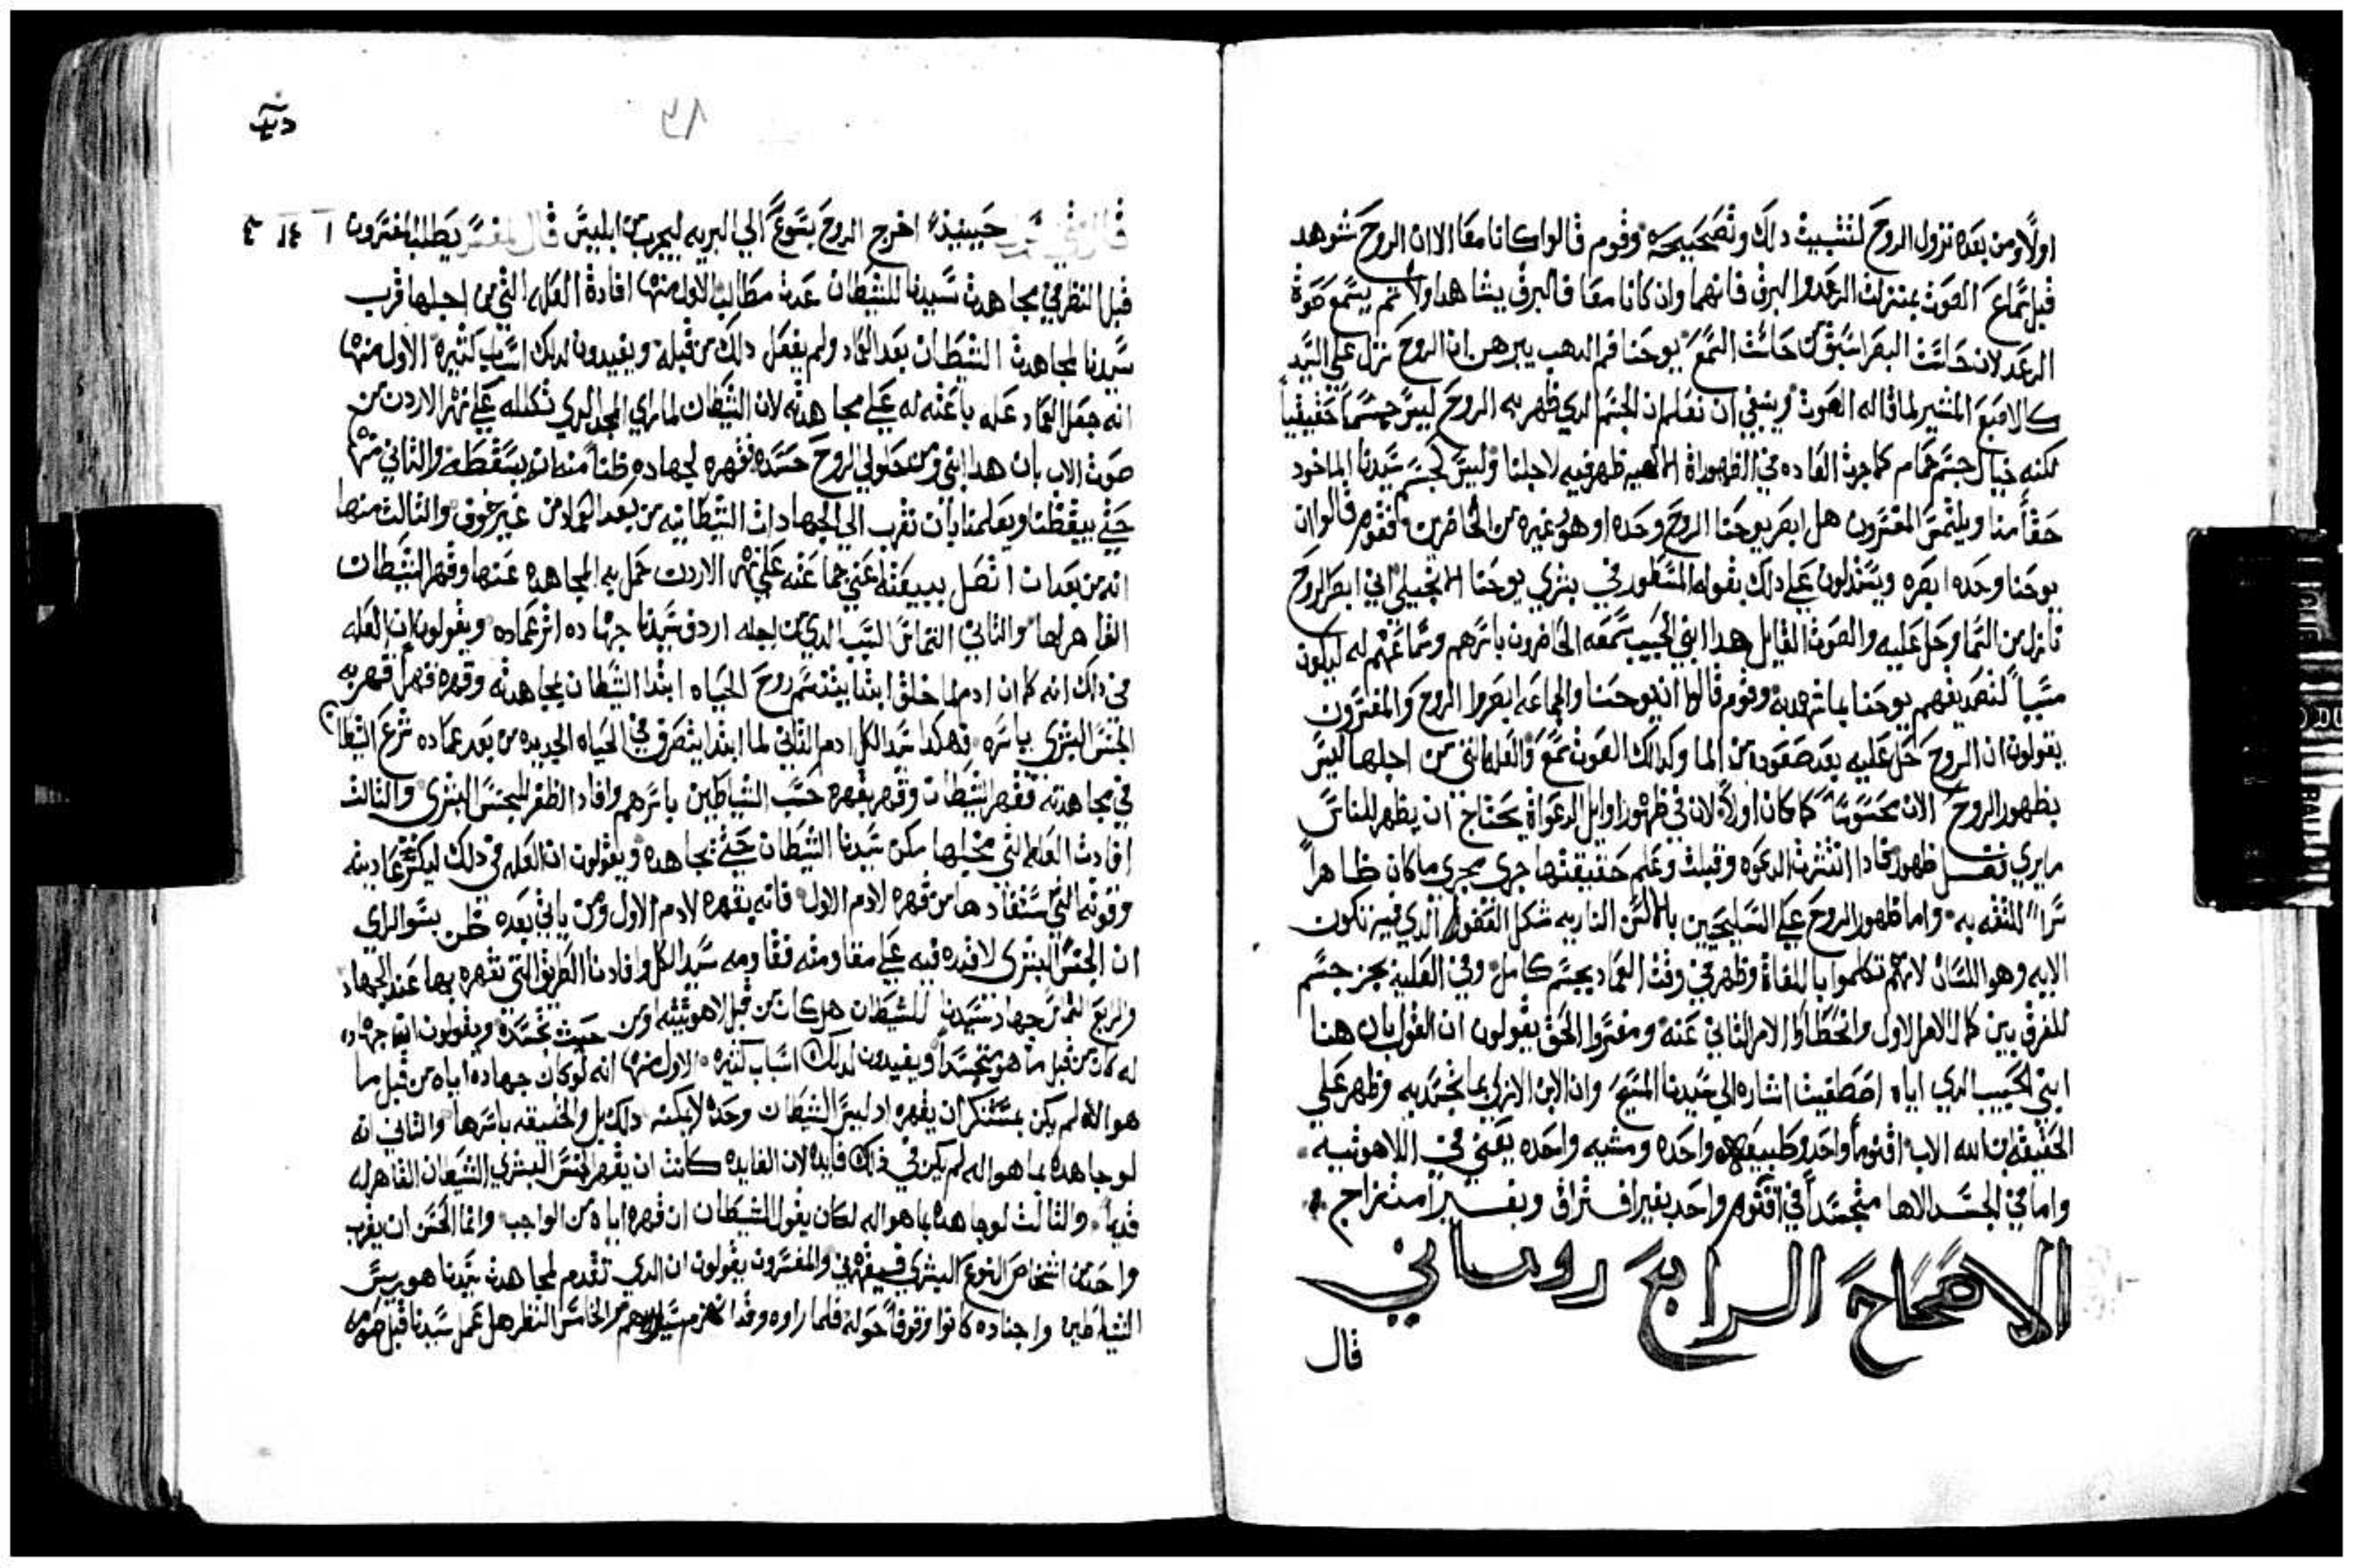 اولاً ومن بعده نزول الروح لتثبيت دلك وتصحيحه وقوم قالوا كانا معًا الا ان الروح شوهد
قبل سماع الصوت بمنزلت الرعد والبرق فانهما وان كانا معًا فالبرق يشاهد اولاً ثم يسمع صوة
الرعد لان حاست البصر اسبق من حاست السمع يوحنا فم الدهب يبرهن ان الروح نزل علي السيد
كالاصبع المشير لما قاله الصوت وينبغي ان نعلم ان الجسم الدي ظهر به الروح ليس جسماً حقيقياً
لكنه خيال جسم حمام كما جرت العاده في الظهوراة الالاهيه ظهر فيه لاجلنا وليس كجسم سيدنا الماخود
حقاً منا ويلتمس المفسرون هل ابصر يوحنا الروح وحده او هو وغيره من الحاضرين فقوم قالوا ان
يوحنا وحده ابصره ويستدلون علي دلك بقوله المسطور في بشري يوحنا الانجيلي اني ابصر الروح
نازل من السما وحل عليه والصوت القايل هدا ابني الحبيب سمعه الحاضرون باسرهم وسماعهم له ليكون
سبباً لتصديقهم يوحنا بما شهد به وقوم قالوا ان يوحنا والجماعه ابصروا الروح والمفسرون
يقولون ان الروح حل عليه بعد صعوده من الما وكدالك الصوت سمع والعله التي من اجلها ليس
يظهور الروح الان محسوسًا كما كان اولاً لان في ظهور اوايل الدعواة يحتاج ان يظهر للناس
ما يري ظهور فادا انتشرت الدعوه وقبلت وعلم حقيقتها جري مجري ما كان ظاهراً
سراً للثقه به واما ظهور الروح علي السليحيين بالالسن الناريه شكل العضو الدي فيه تكون
الايه وهو اللسان لانهم تكلموا باللغاة وظهر في وقت العماد بجسم كامل وفي العلية بجز جسم
للفرق بين كمال الامر الاول وانحطاط الامر الثاني عنه ومفسروا الحق يقولون ان القول بان هدا
ابني الحبيب الدي اياه اصطفيت اشاره الي سيدنا المسيح وان الابن الازلي بما تجسد به وظهر علي
الحقيقه ان الله الاب اقنوماً واحد وطبيعه واحده ومشيه واحده يعني في اللاهوتيه
واما في الجسد الاها متجسداً في اقنوم واحد بغير افتراق وبغير امتزاج
الاصحاح الرابع روماني
قال
دىى
٨٩
حينيذ اخرج الروح يسوع الي البريه ليجرب من ابليس قال المفسر يطلب المفسرون ١ ١٤ ٤
قبل النظر في مجاهدت سيدنا للشيطان عدت مطالب الاول منها افادة العله التي من اجلها قرب
سيدنا لمجاهدت الشيطان بعد العماد ولم يفعل دلك من قبله ويفيدون لدلك اسباب كثيره الاول منها
انه جعل العماد عله باعثه له علي مجاهدته لان الشيطان لما راي المجد الدي تكلله علي نهر الاردن من
صوت الاب بان هدا ابني ومن حلول الروح حسده فقهره لجهاده ظناً منه ان يسقطه والثاني منها
حتي ييقظنا ويعلمنا بان نقرب الي الجهادات الشيطانيه من بعد العماد من غير خوف والثالث منها
انه من بعد ان اتصل ببيعته اعني جماعته علي نهر الاردن حمل به المجاهده عنها وقهر الشيطان
القاهر لها والثاني التماس السبب الدي من اجله اردف سيدنا جهاده اثر عماده ويقولون ان العله
في دلك انه كما ان ادم لما خلق ابتدا يتنسم روح الحياه ابتدا الشيطان بمجاهدته وقهره فبهل قهر به
الجنس البشري باسره فهكدا سيد الكل ادم الثاني لما ابتدا يتصرف في الحياه الجديده من بعد عماده شرع الشيطان
في مجاهدته فقهر الشيطان وقهر بقهره حسب الشياطين باسرهم وافاد الظفر للجنس البشري والثالث
افادت العله التي من اجلها مكن سيدنا الشيطان حتي يجاهده ويقولون ان العله في دلك ليكسر عاديته
وقوته التي استفادها من قهره لادم الاول فانه بقهره لادم الاول ومن ياتي بعده ظن بسو الراي
ان الجنس البشري لا قدره فيه علي مقاومته فقاومه سيد الكل وافادنا الطريق التي نقهره بها عند الجهاد
والرابع التماس جهاد سيدنا للشيطان هل كان من قبل لاهوتيته او من حيث تجسده ويقولون انما جهاده
له كان من قبل ما هو متجسداً ويفيدون لدلك اسباب كثيره الاول منها انه لو كان جهاده اياه من قبل ما
هو الاله لم يكن بمستنكر ان يقهره اد ليس الشيطان وحده لا يمكنه دلك بل والخليقه باسرها والثاني انه
لو جاهده بما هو اله لم يكن في دلك فايده لان الفايده كانت ان يقهر الجنس البشري الشيطان القاهر له
قديماً والثالث لو جاهده بما هو اله لكان يقول الشيطان ان قهره اياه من الواجب وانما الحسن ان يقرب
واحد من اشخاص النوع البشري فيقهرني والمفسرون يقولون ان الدي تقدم لمجاهدت سيدنا هو ريس
الشياطين واجناده كانوا وقوفاً حوله فلما راوه وقد انهزم والخامس النظر هل عمل سيدنا قبل صومه